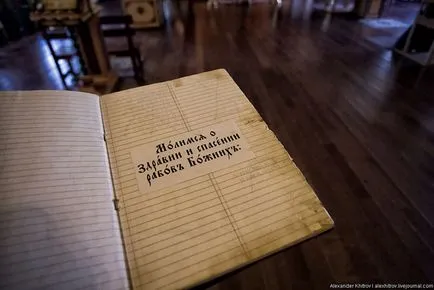 Мо́лимсѧ о
Здра́вїи и спасе́нїи
рабо́въ Бо́жїихъ:
Alexander Khitrov | alexhitrov.livejournal.com